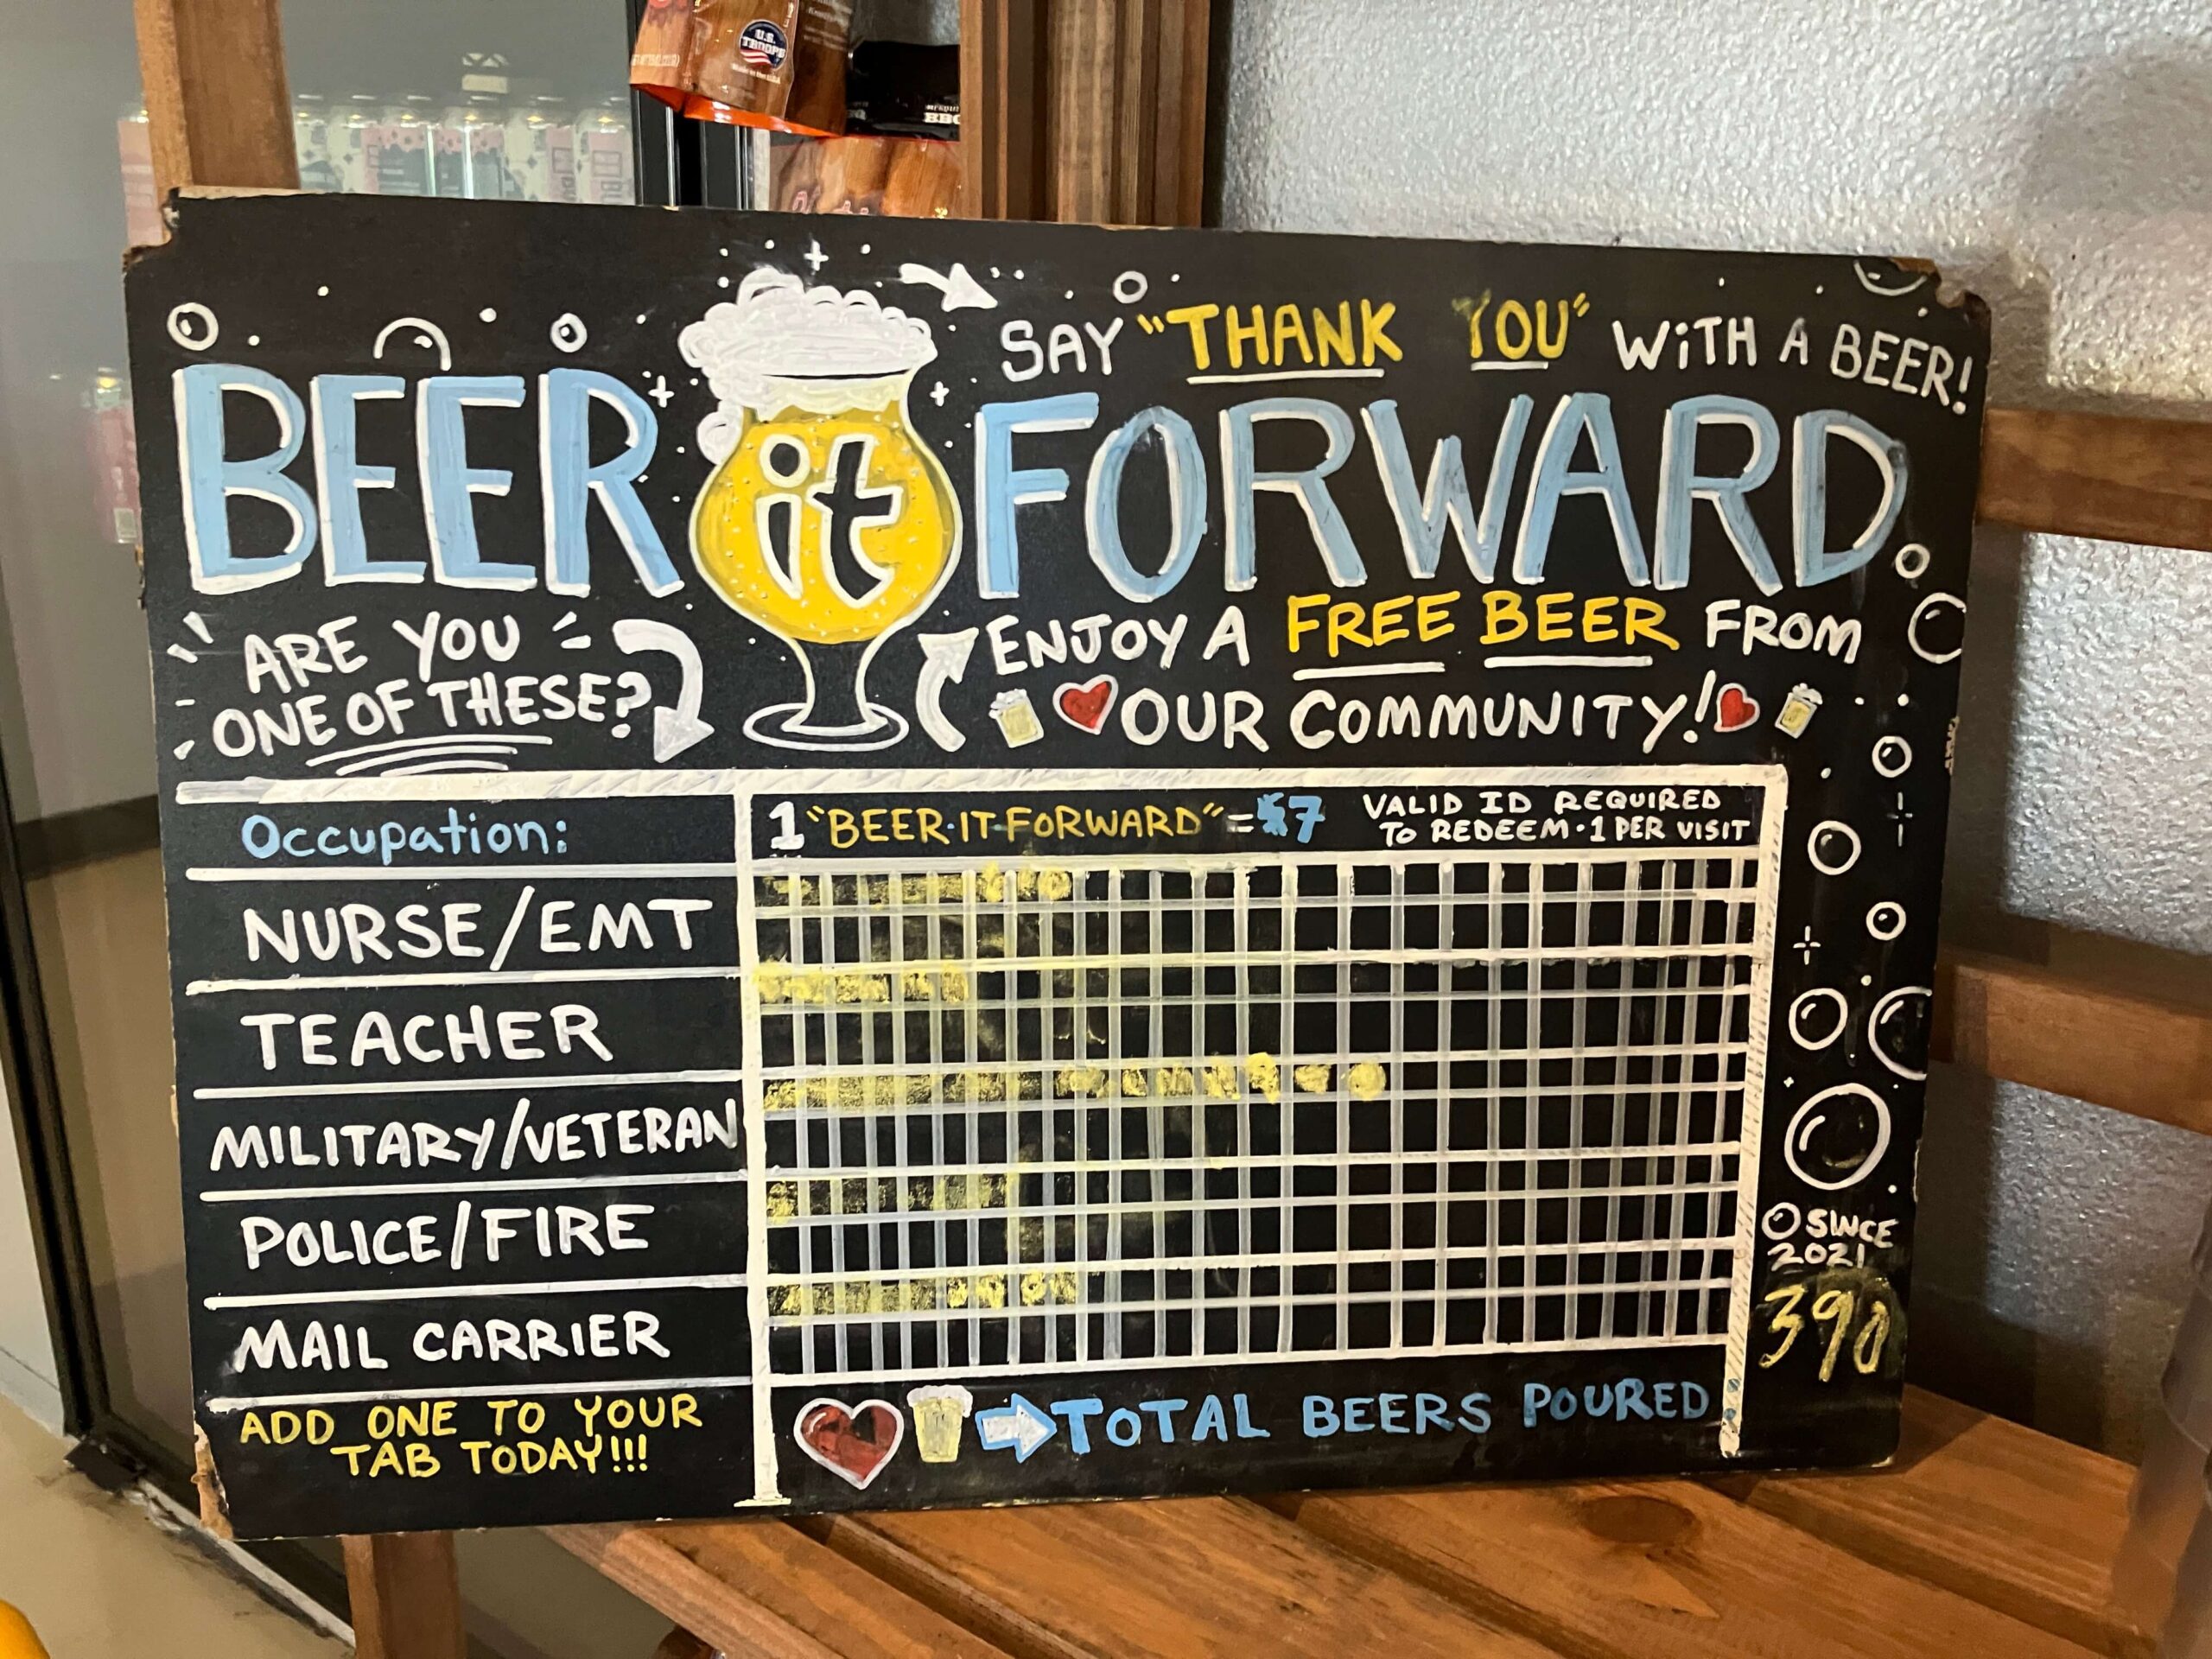 U.S.
TROOPS
Made in the U.S.A.
BBQ
SAY "THANK YOU" WITH A BEER!
BEER it FORWARD
ARE YOU
ONE OF THESE?
ENJOY A FREE BEER FROM
OUR COMMUNITY!
Occupation:
1 "BEER·IT·FORWARD" = $7
VALID ID REQUIRED
TO REDEEM · 1 PER VISIT
NURSE/EMT
TEACHER
MILITARY/VETERAN
POLICE/FIRE
MAIL CARRIER
ADD ONE TO YOUR
TAB TODAY!!!
TOTAL BEERS POURED
SINCE
2021
390